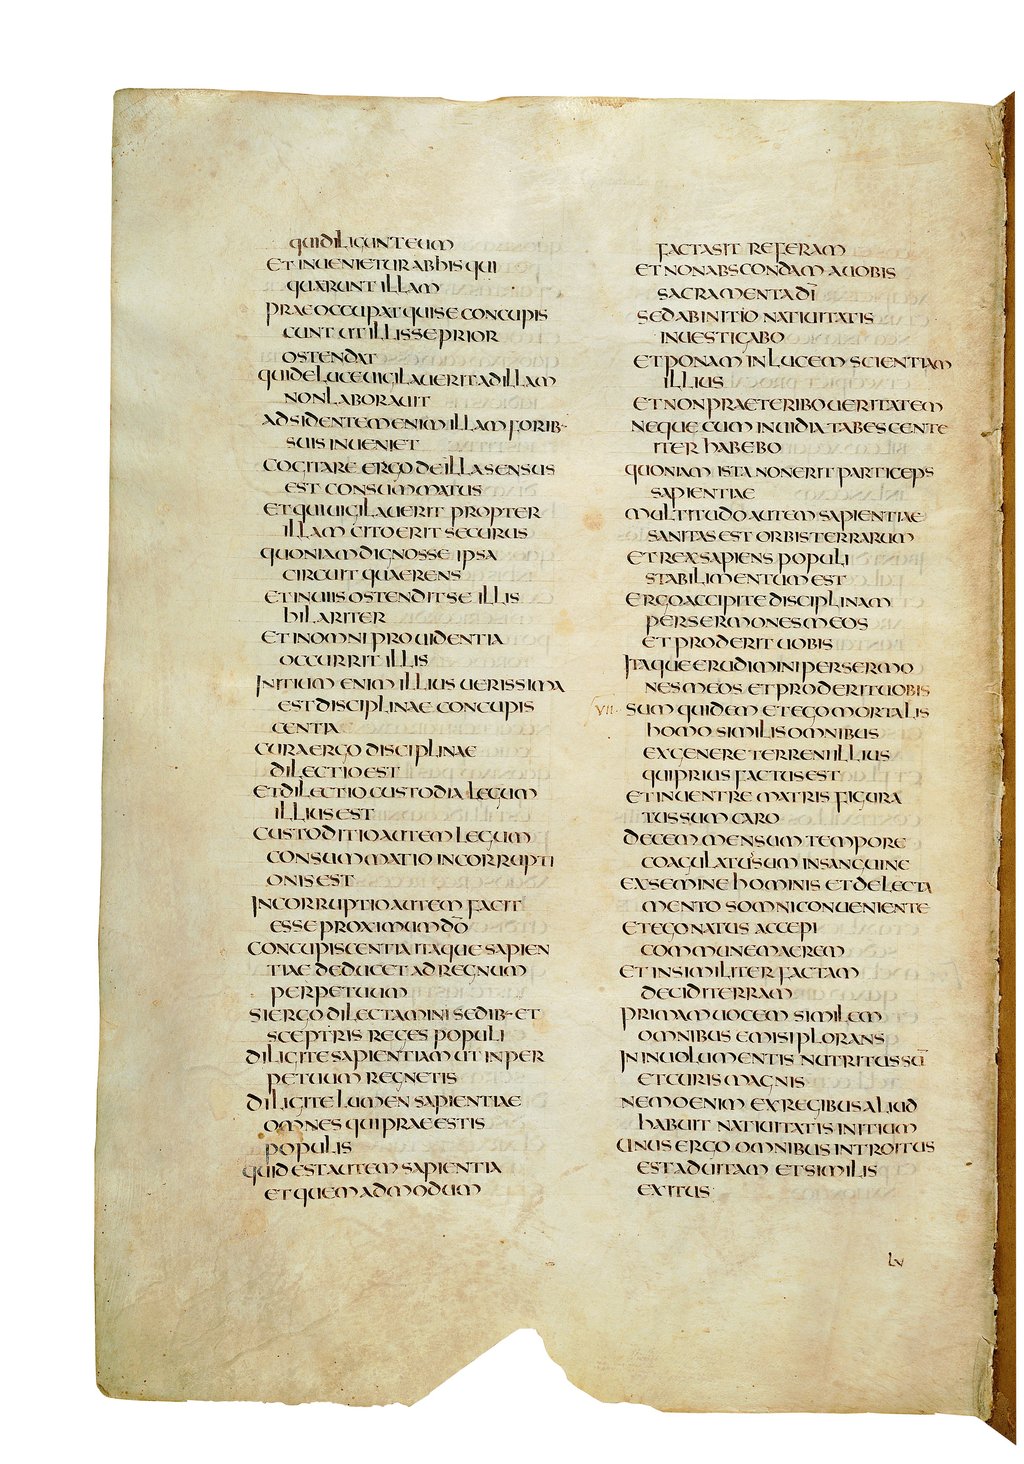 qui diligunt eum
et inuenietur ab his qui
quaerunt illam
praeoccupat qui se concupis
cunt ut illis se prior
ostendat
qui de luce uigilauerit ad illam
non laborauit
adsidentem enim illam forib-
suis inueniet
cogitare ergo de illa sensus
est consummatus
et qui uigilauerit propter
illam cito erit securus
quoniam dignos se ipsa
circuit quaerens
et in uiis ostendit se illis
hilariter
et in omni prouidentia
occurrit illis
Initium enim illius uerissima
est disciplinae concupis
centia
cura ergo disciplinae
dilectio est
et dilectio custodia legum
illius est
custoditio autem legum
consummatio incorrupti
onis est
Incorruptio autem facit
esse proximum dō
concupiscentia itaque sapien
tiae deducet ad regnum
perpetuum
si ergo dilectamini sedib- et
sceptris reges populi
diligite sapientiam ut in per
petuum regnetis
diligite lumen sapientiae
omnes qui praeestis
populis
quid est autem sapientia
et quemadmodum
facta sit referam
et non abscondam a uobis
sacramenta dī
sed ab initio natiuitatis
inuestigabo
et ponam in lucem scientiam
illius
et non praeteribo ueritatem
neque cum inuidia tabescente
iter habebo
quoniam ista non erit particeps
sapientiae
multitudo autem sapientiae
sanitas est orbis terrarum
et rex sapiens populi
stabilimentum est
ergo accipite disciplinam
per sermones meos
et proderit uobis
Itaque erudimini per sermo
nes meos et proderit uobis
VII. sum quidem et ego mortalis
homo similis omnibus
ex genere terreni illius
qui prius factus est
et in uentre matris figura
tus sum caro
decem mensum tempore
coagulatus sum in sanguine
ex semine hominis et delecta
mento somni conueniente
et ego natus accepi
communem aerem
et in similiter factam
decidi terram
primam uocem similem
omnibus emisi plorans
In inuolumentis nutritus sū
et curis magnis
nemo enim ex regibus aliud
habuit natiuitatis initium
unus ergo omnibus introitus
est ad uitam et similis
exitus
lv